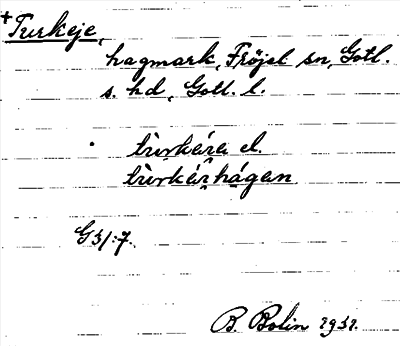 +Turkeje,
hagmark, Fröjel sn, Gotl.
s. hd, Gotl. l.
tùrkára el.
tùrkárhágan
G31:7.
B. Bolin 1931.